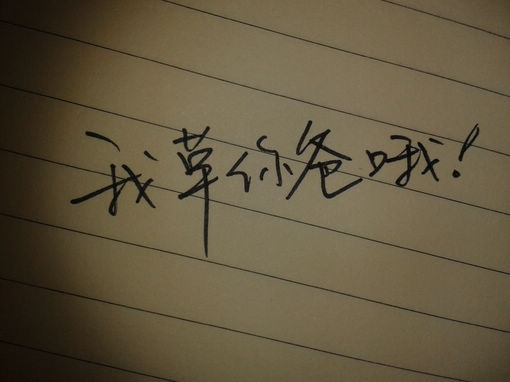 我草你爸哦!